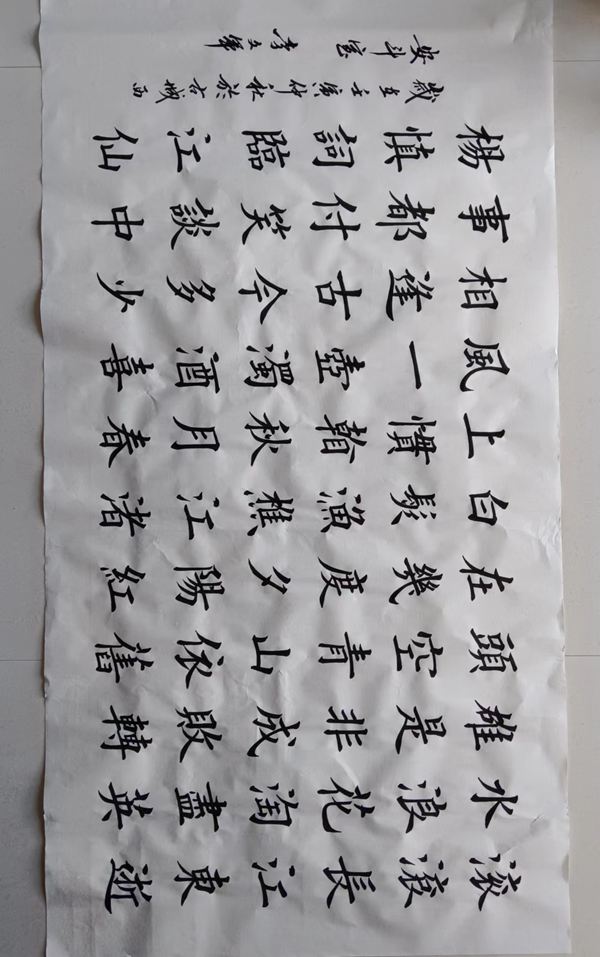 滾滾長江東逝
水浪花淘盡英
雄是非成敗轉
頭空青山依舊
在幾度夕陽紅
白髮漁樵江渚
上慣看秋月春
風一壺濁酒喜
相逢古今多少
事都付笑談中
楊慎詞臨江仙
歲在壬寅仲秋於古城西
安斗室 李立軍